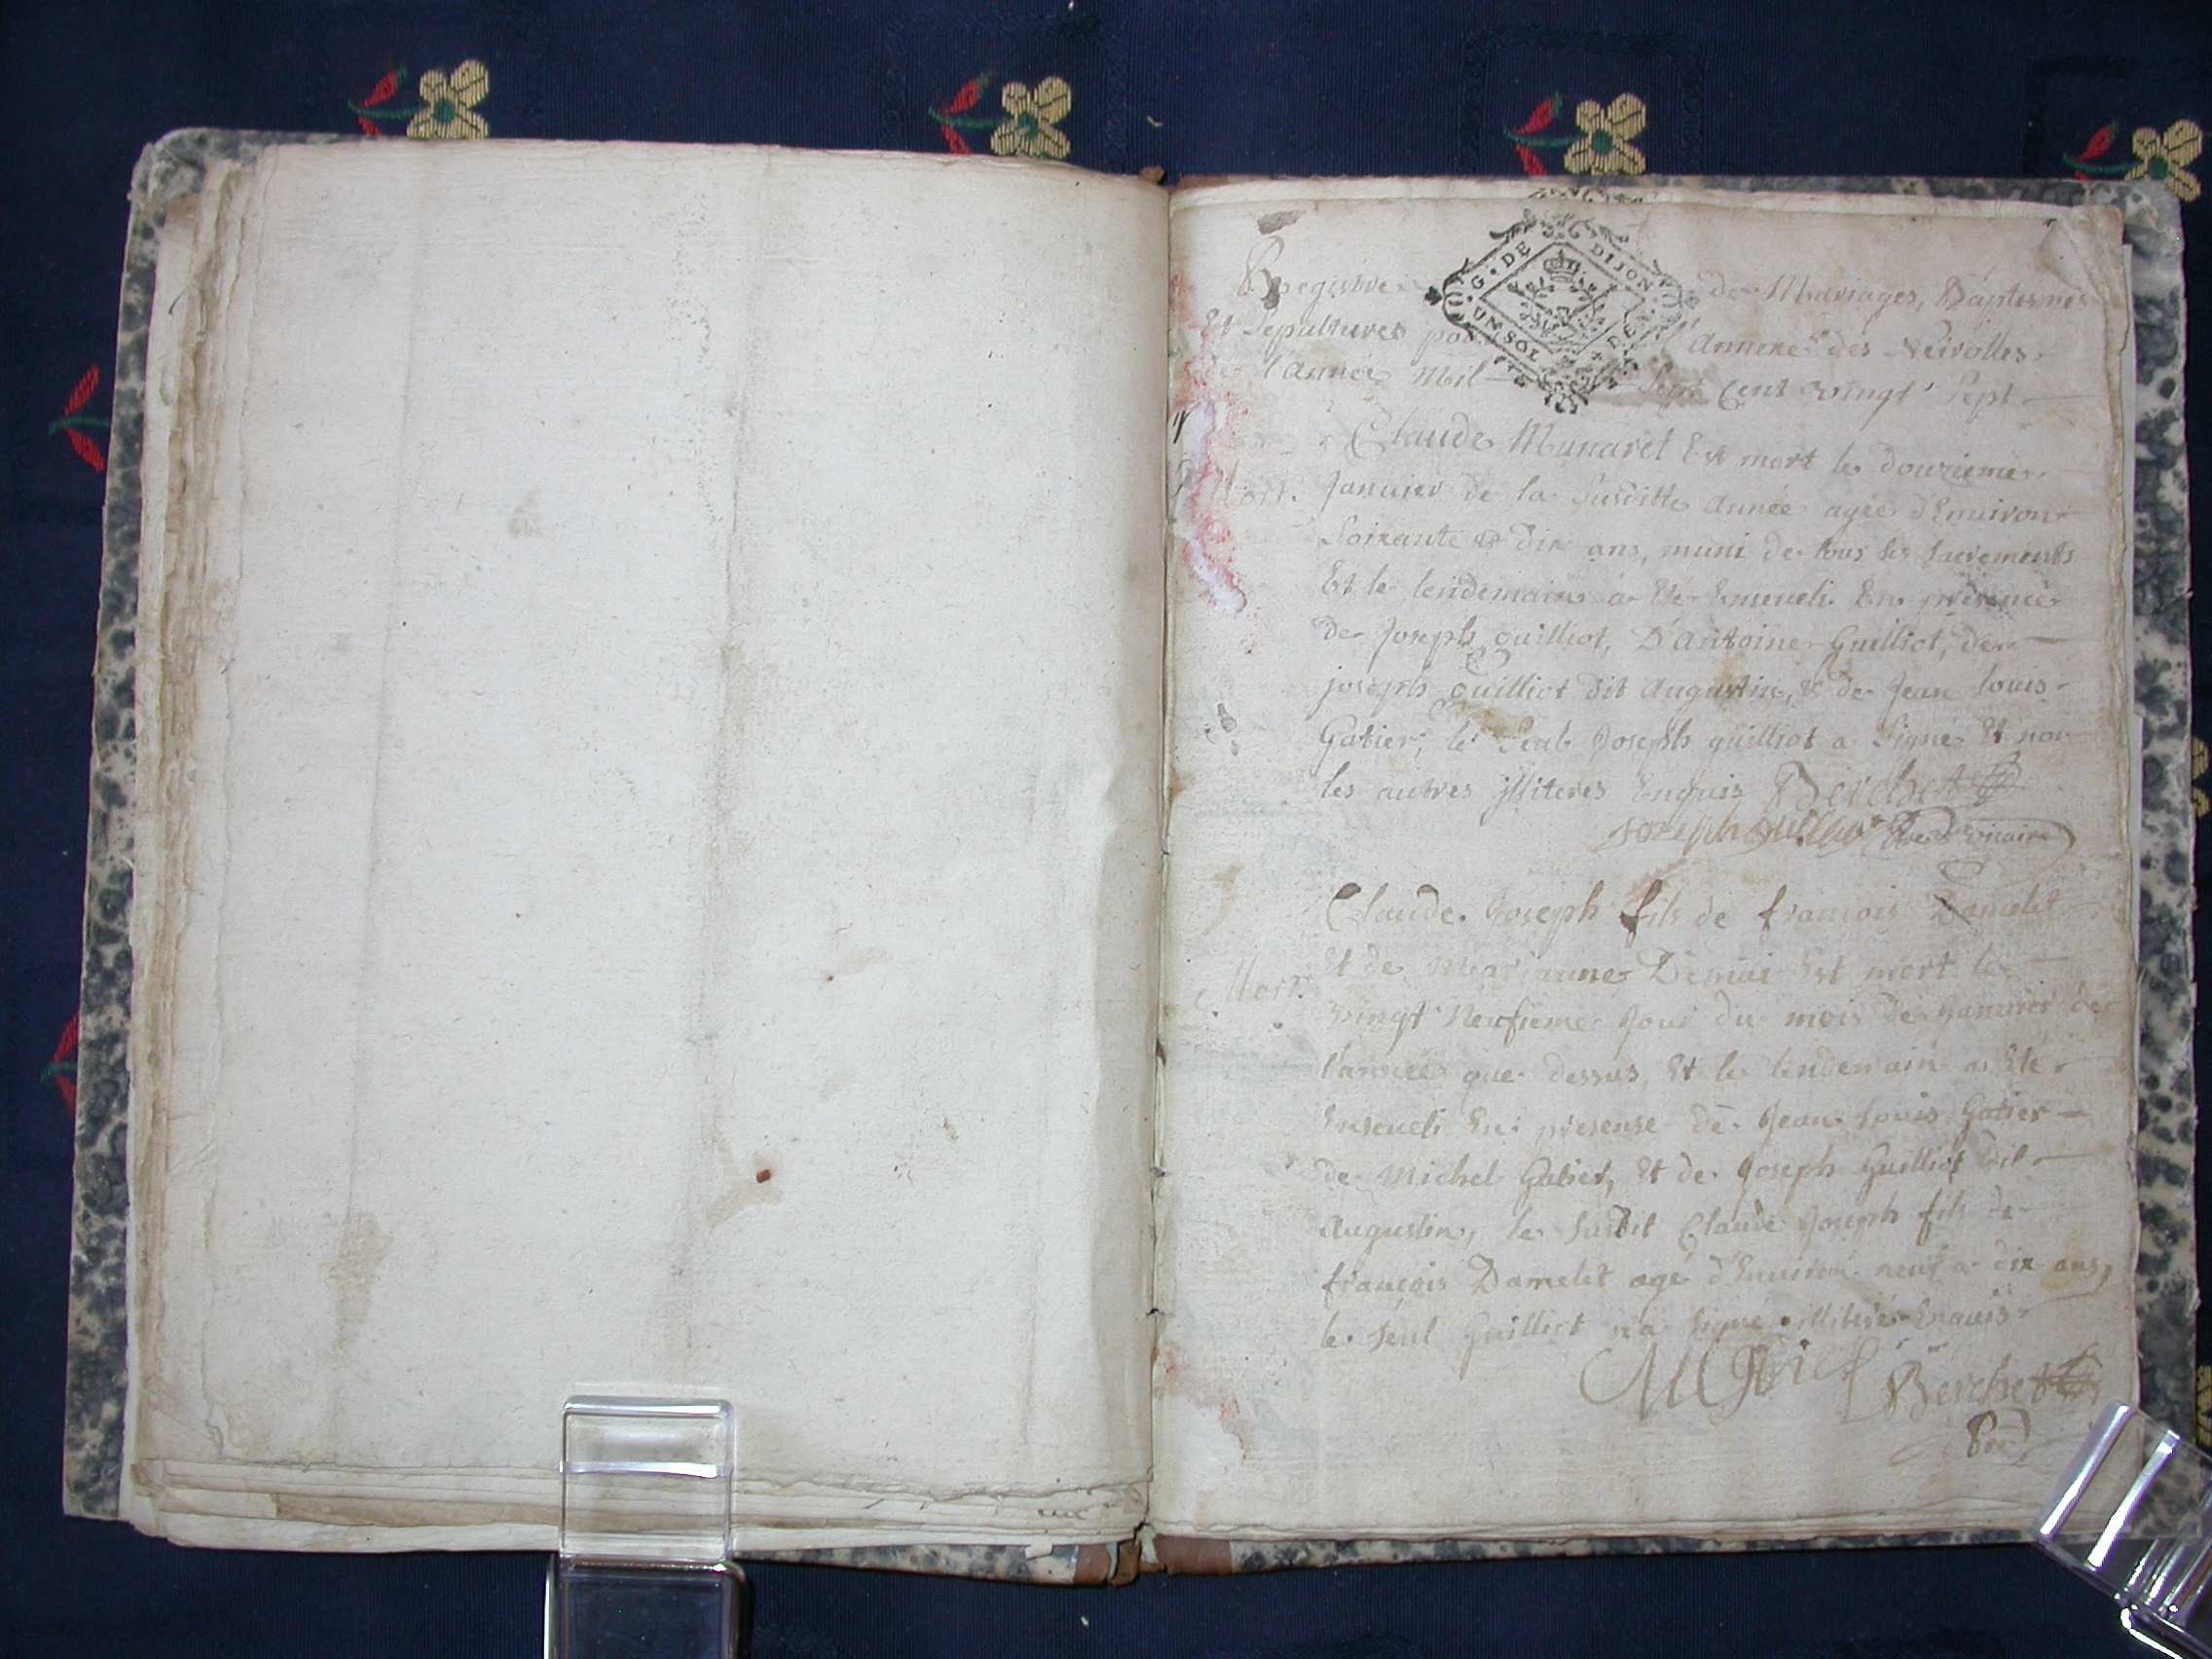 G. DE DIJON
UN SOL
Registre de Mariages, Baptesmes
Et Sepultures pour l'annexe des Neirolles
de l'année Mil Sept Cent vingt Sept
Claude Munaret Est mort le douzieme
Mort. Januier de la Susditte année agée d'Enuiron
Soixante & dix ans, muni de tous ses sacrements
Et le lendemain a Ete Enseueli En présence
de Joseph guilliot, D'antoine Guilliot, de
joseph guilliot dit Augustin, & de Jean louis
Gatier, le Seul Joseph guilliot a Signé Et non
les autres jlliteres Enquis Berchet
joseph guilliot Pre vicaire
Claude Joseph fils de francois Damelet
Et de Marianne Est mort le
Mort. vingt Neufieme Jour du mois de januier de
l'année que dessus, Et le lendemain a Ete
Enseueli En presense de Jean Louis Gatier
de Michel Gatier, Et de Joseph Guilliot dit
Augustin, le Susdit Claude Joseph fils de
françois Damelet agé d'Enuiron neuf a dix ans,
le Seul Guilliot n'a Signé illiteré Enquis
Berchet
Pre